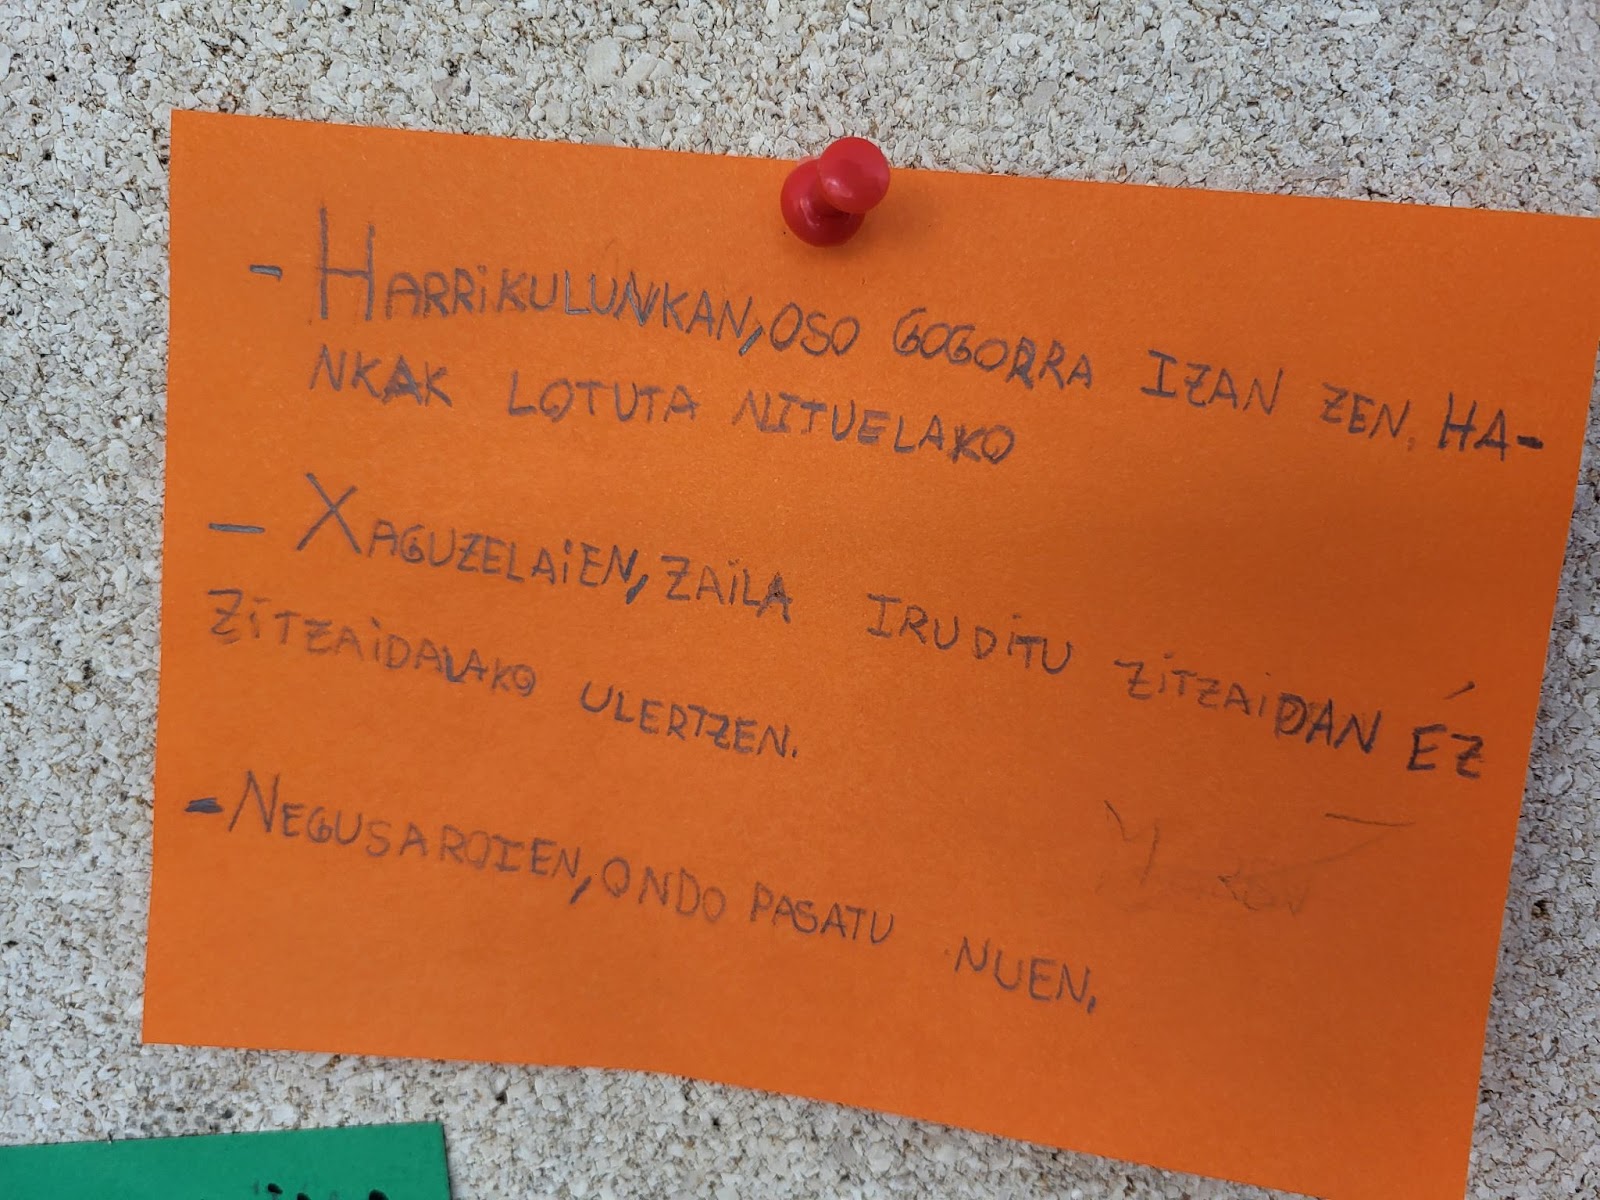 - HARRiKULUNKAN, OSO GOGORRA IZAN ZEN. HA-
NKAK LOTUTA NITUELAKO
- XAGUZELAiEN, ZAiLA IRUDiTU ZiTZAiDAN ÉZ
ZiTZAiDALAKO ULERTZEN.
- NEGUSAROIEN, ONDO PASATU NUEN.